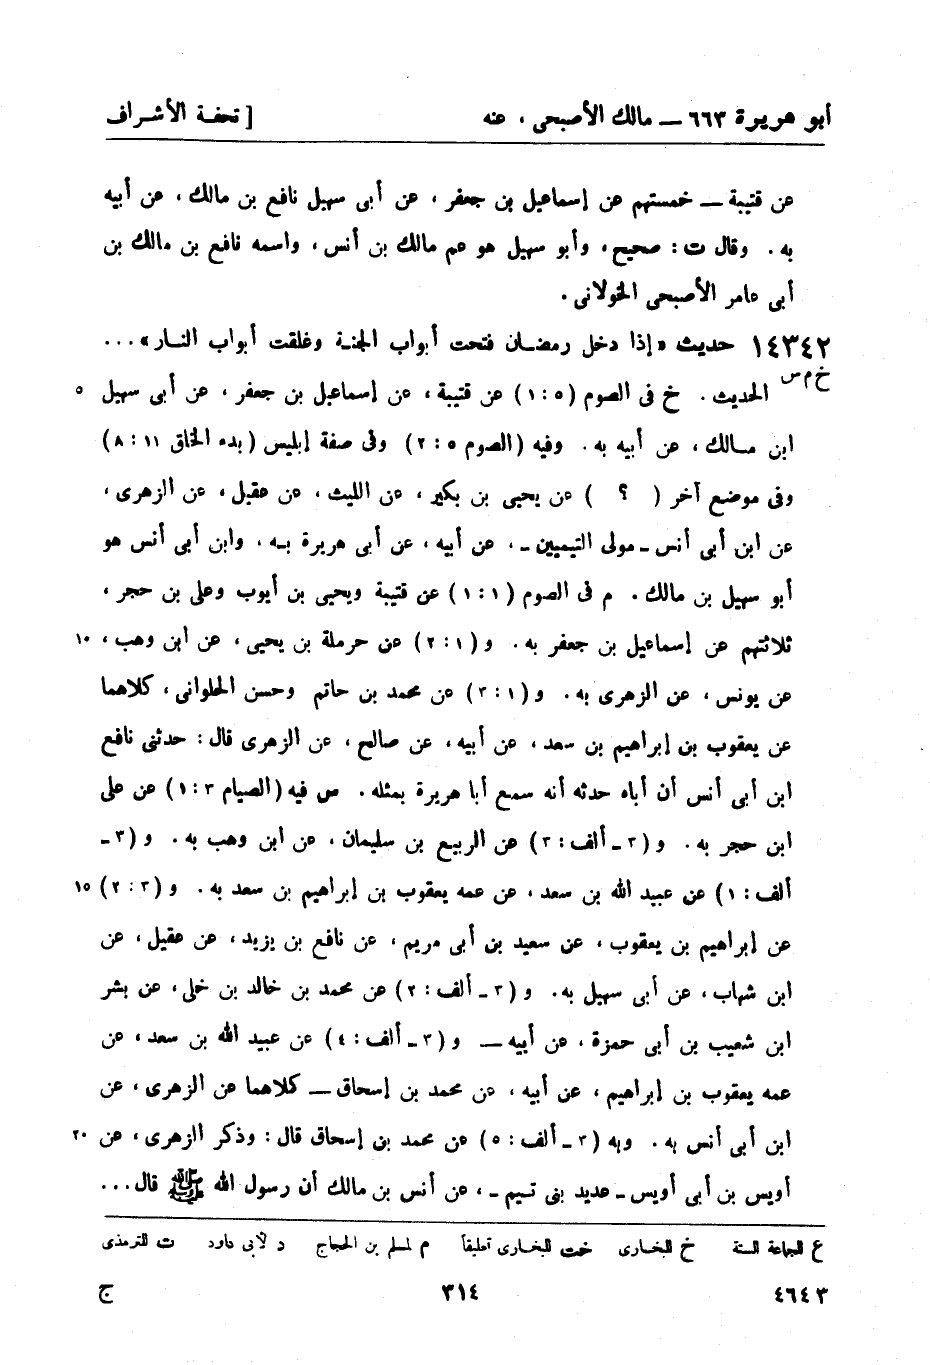 أبو هريرة ٦٦٣ ــ مالك الأصبحى ، عنه [ تحفة الأشراف
عن قتيبة ــ خمستهم عن إسماعيل بن جعفر ، عن أبى سهيل نافع بن مالك ، عن أبيه
به . وقال ت : صحيح ، وأبو سهيل هو عم مالك بن أنس ، واسمه نافع بن مالك بن
أبى عامر الأصبحى الخولانى .
١٤٣٤٢ حديث « إذا دخل رمضـان فتحت أبواب الجنـة وغلقت أبواب النـار » ...
خ م س
الحديث . خ فى الصوم ( ٥ : ١ ) عن قتيبة ، عن إسماعيل بن جعفر ، عن أبى سهيل ٥
ابن مـالك ، عن أبيه به . وفيه ( الصوم ٥ : ٢ ) وفى صفة إبليس ( بدء الخلق ١١ : ٨ )
وفى موضع آخر ( ؟ ) عن يحيى بن بكير ، عن الليث ، عن عقيل ، عن الزهرى ،
عن ابن أبى أنس ـ مولى التيميين ـ ، عن أبيه ، عن أبى هريرة بـه . وابن أبى أنس هو
أبو سهيل بن مالك . م فى الصوم ( ١ : ١ ) عن قتيبة ويحيى بن أيوب وعلى بن حجر ،
ثلاثتهم عن إسماعيل بن جعفر به . و ( ١ : ٢ ) عن حرملة بن يحيى ، عن ابن وهب ، ١٠
عن يونس ، عن الزهرى به . و ( ١ : ٣ ) عن محمد بن حاتم وحسن الحلوانى ، كلاهما
عن يعقوب بن إبراهيم بن سعد ، عن أبيه ، عن صالح ، عن الزهرى قال : حدثنى نافع
ابن أبى أنس أن أباه حدثه أنه سمع أبا هريرة بمثله . س فيه ( الصيام ٣ : ١ ) عن على
ابن حجر به . و ( ٣ ـ ألف : ٣ ) عن الربيع بن سليمان ، عن ابن وهب به . و ( ٣ ـ
ألف : ١ ) عن عبيد الله بن سعد ، عن عمه يعقوب بن إبراهيم بن سعد به . و ( ٣ : ٢ ) ١٥
عن إبراهيم بن يعقوب ، عن سعيد بن أبى مريم ، عن نافع بن يزيد ، عن عقيل ، عن
ابن شهاب ، عن أبى سهيل به . و ( ٣ ـ ألف : ٢ ) عن محمد بن خالد بن خلى ، عن بشر
ابن شعيب بن أبى حمزة ، عن أبيه ــ و ( ٣ ـ ألف : ٤ ) عن عبيد الله بن سعد ، عن
عمه يعقوب بن إبراهيم ، عن أبيه ، عن محمد بن إسحاق ــ كلاهما عن الزهرى ، عن
ابن أبى أنس به . وبه ( ٣ ـ ألف : ٥ ) عن محمد بن إسحاق قال : وذكر الزهرى ، عن ٢٠
أويس بن أبى أويس ـ عديد بنى تـيم ـ ، عن أنس بن مالك أن رسول الله ﷺ قال ...
ع للجماعة الستة خ للبخـارى خت للبخارى تعليقاً م لمسلم بن الحجاج د لأبى داود ت للترمذى
٤٦٤٣ ٣١٤ ج